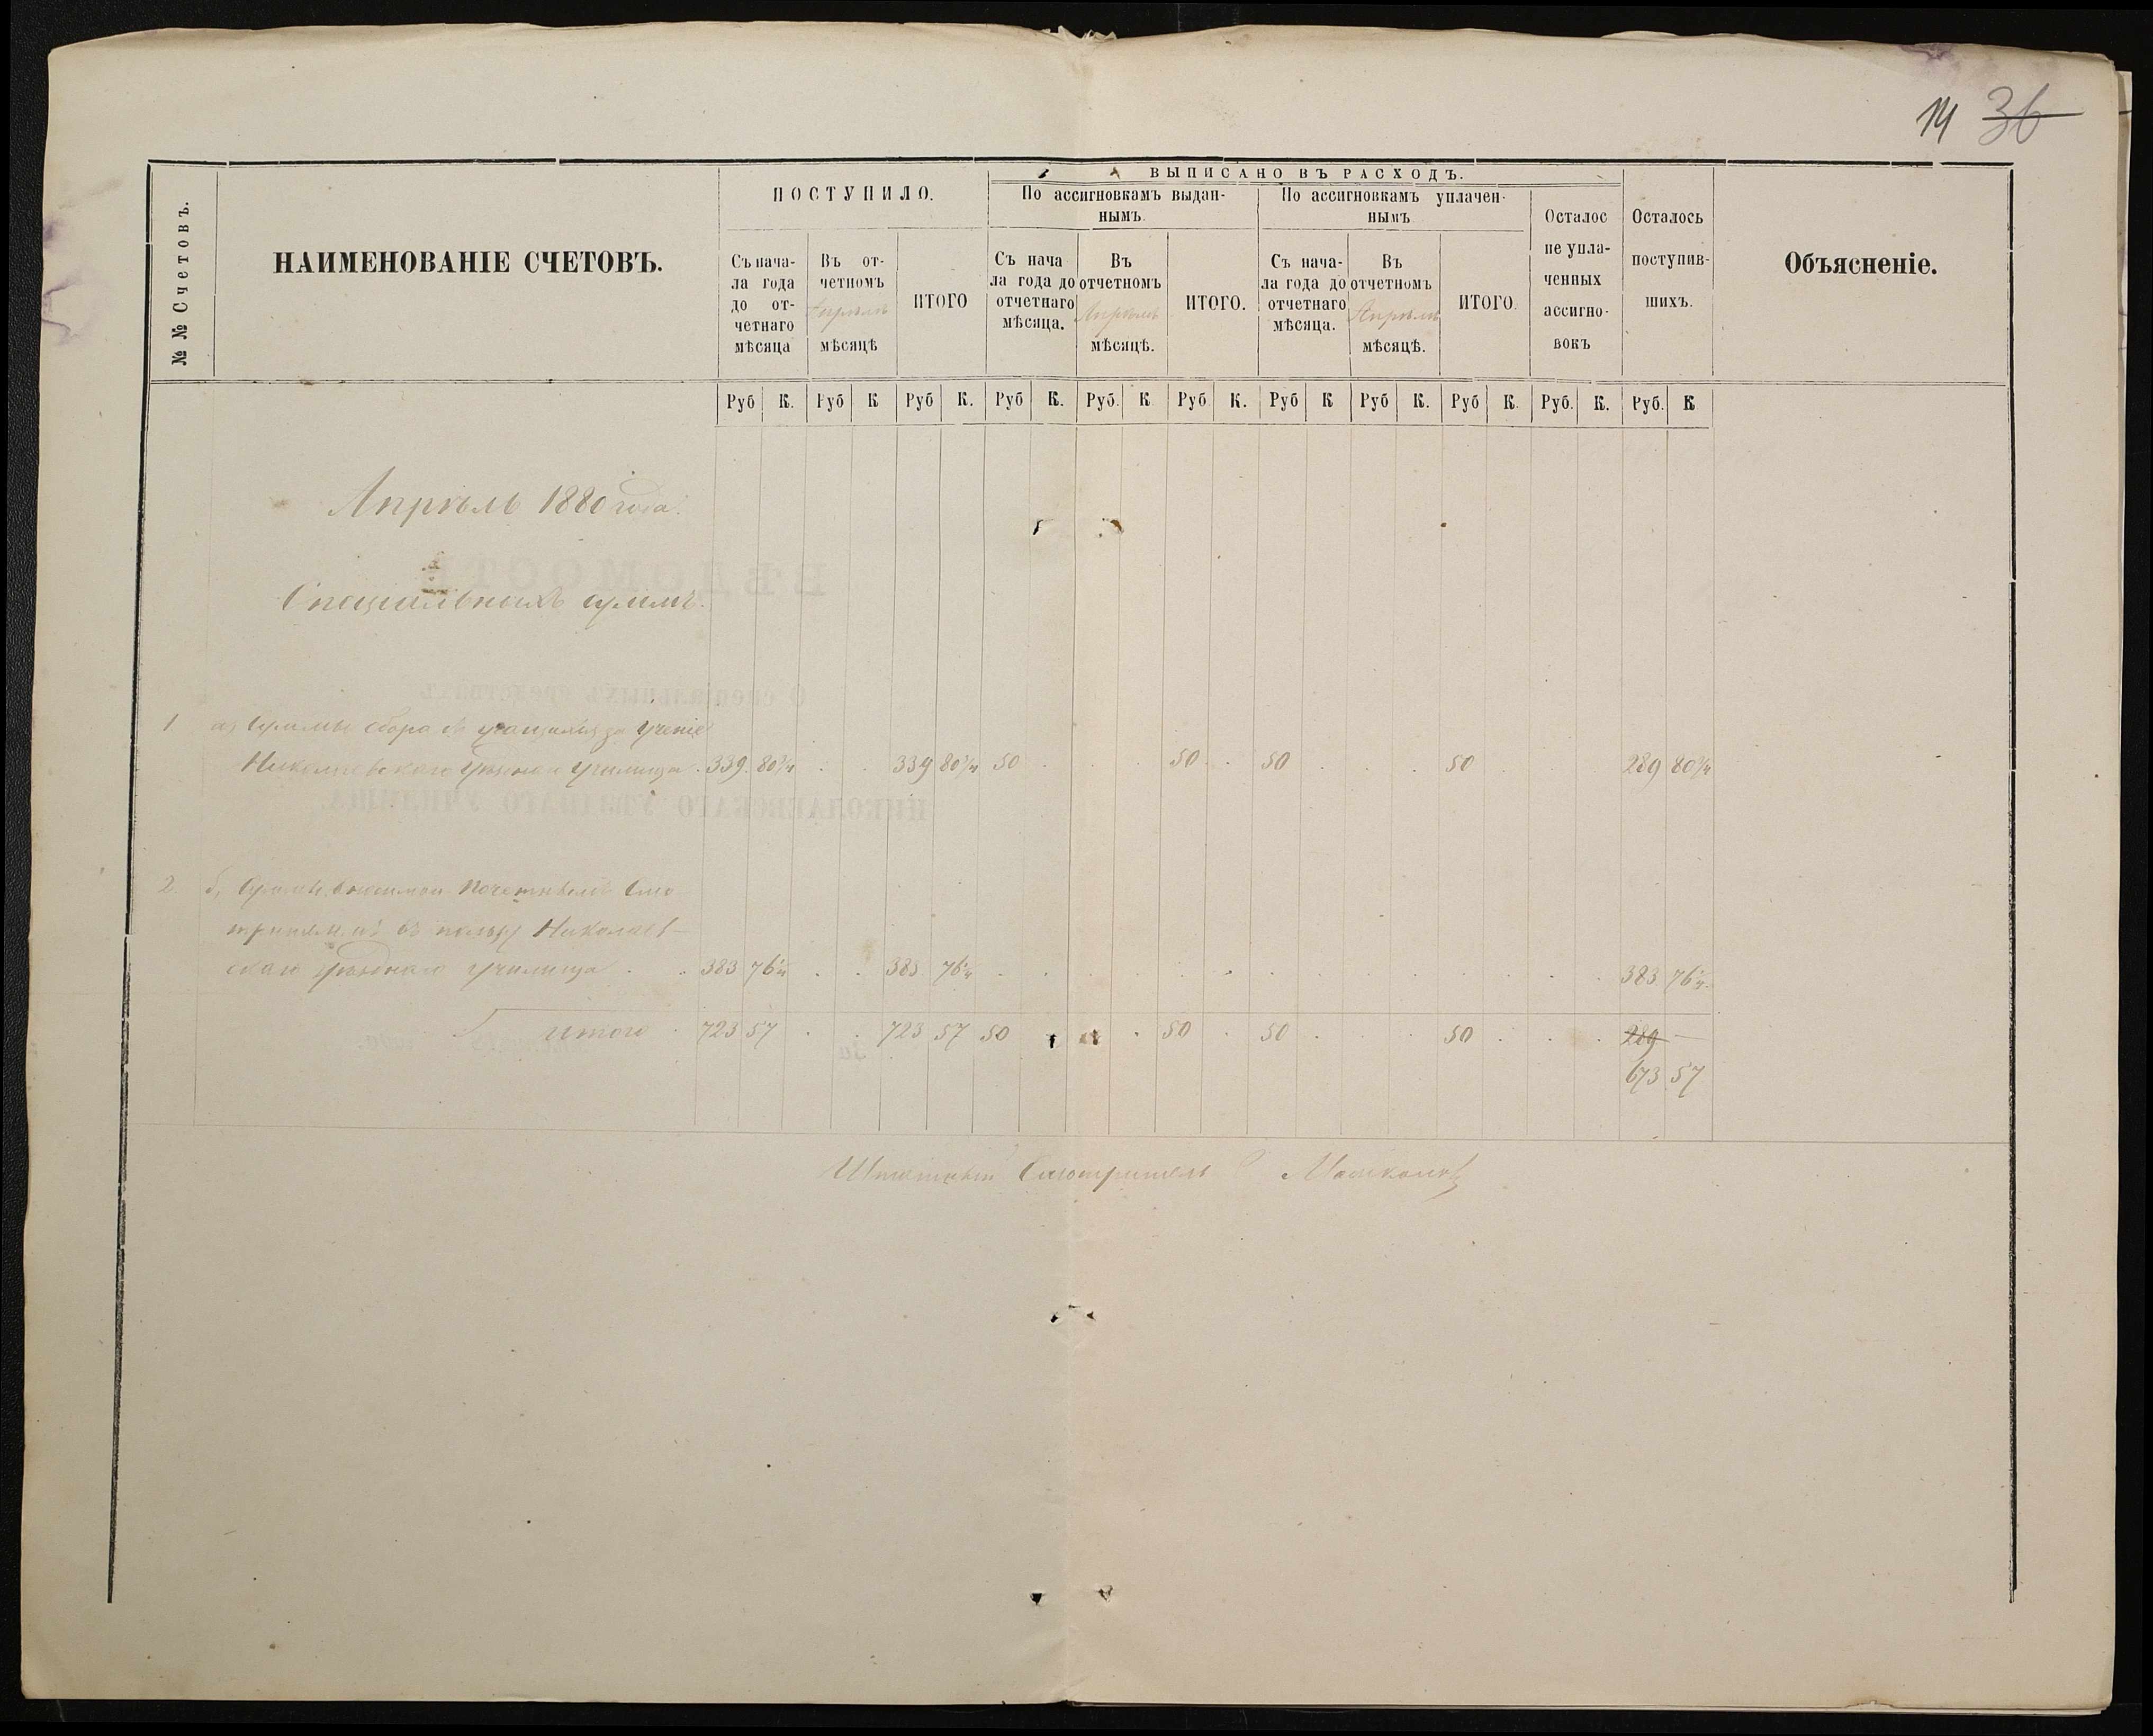 14 36
№ № Счетовъ.
НАИМЕНОВАНІЕ СЧЕТОВЪ.
ПОСТУПИЛО.
Съ нача-
ла года
до от-
четнаго
мѣсяца
Въ от-
четномъ
Апрѣлѣ
мѣсяцѣ
ИТОГО
ВЫПИСАНО ВЪ РАСХОДЪ.
По ассигновкамъ выдан-
нымъ.
Съ нача
ла года до
отчетнаго
мѣсяца.
Въ
отчетномъ
Апрѣлѣ
мѣсяцѣ.
ИТОГО.
По ассигновкамъ уплачен-
нымъ
Съ нача-
ла года до
отчетнаго
мѣсяца.
Въ
отчетномъ
Апрѣлѣ
мѣсяцѣ.
ИТОГО.
Осталос
не упла-
ченныхъ
ассигно-
вокъ
Осталось
поступив-
шихъ.
Объясненіе.
Руб К. Руб К Руб К. Руб К. Руб. К Руб К. Руб К Руб К. Руб К. Руб. К. Руб. К
Апрѣль 1880 года.
Спеціальныхъ суммъ.
1 а, Суммы сбора съ учащихся за ученіе
Николаевскаго Уѣзднаго Училища . 339 80 3/4 . . 339 80 3/4 50 . . . 50 . 50 . . . 50 . . . 289 80 3/4
2. б, Суммы, вносимой Почетнымъ Смо
трителемъ въ пользу Николаев-
скаго Уѣзднаго Училища . . 383 76 1/4 . . 383 76 1/4 . . . . . . . . . . . . . . 383 76 1/4
Итого . 723 57 . . 723 57 50 . 50 . 50 . . . 50 . . . 289 —
673 57
Штатный Смотритель